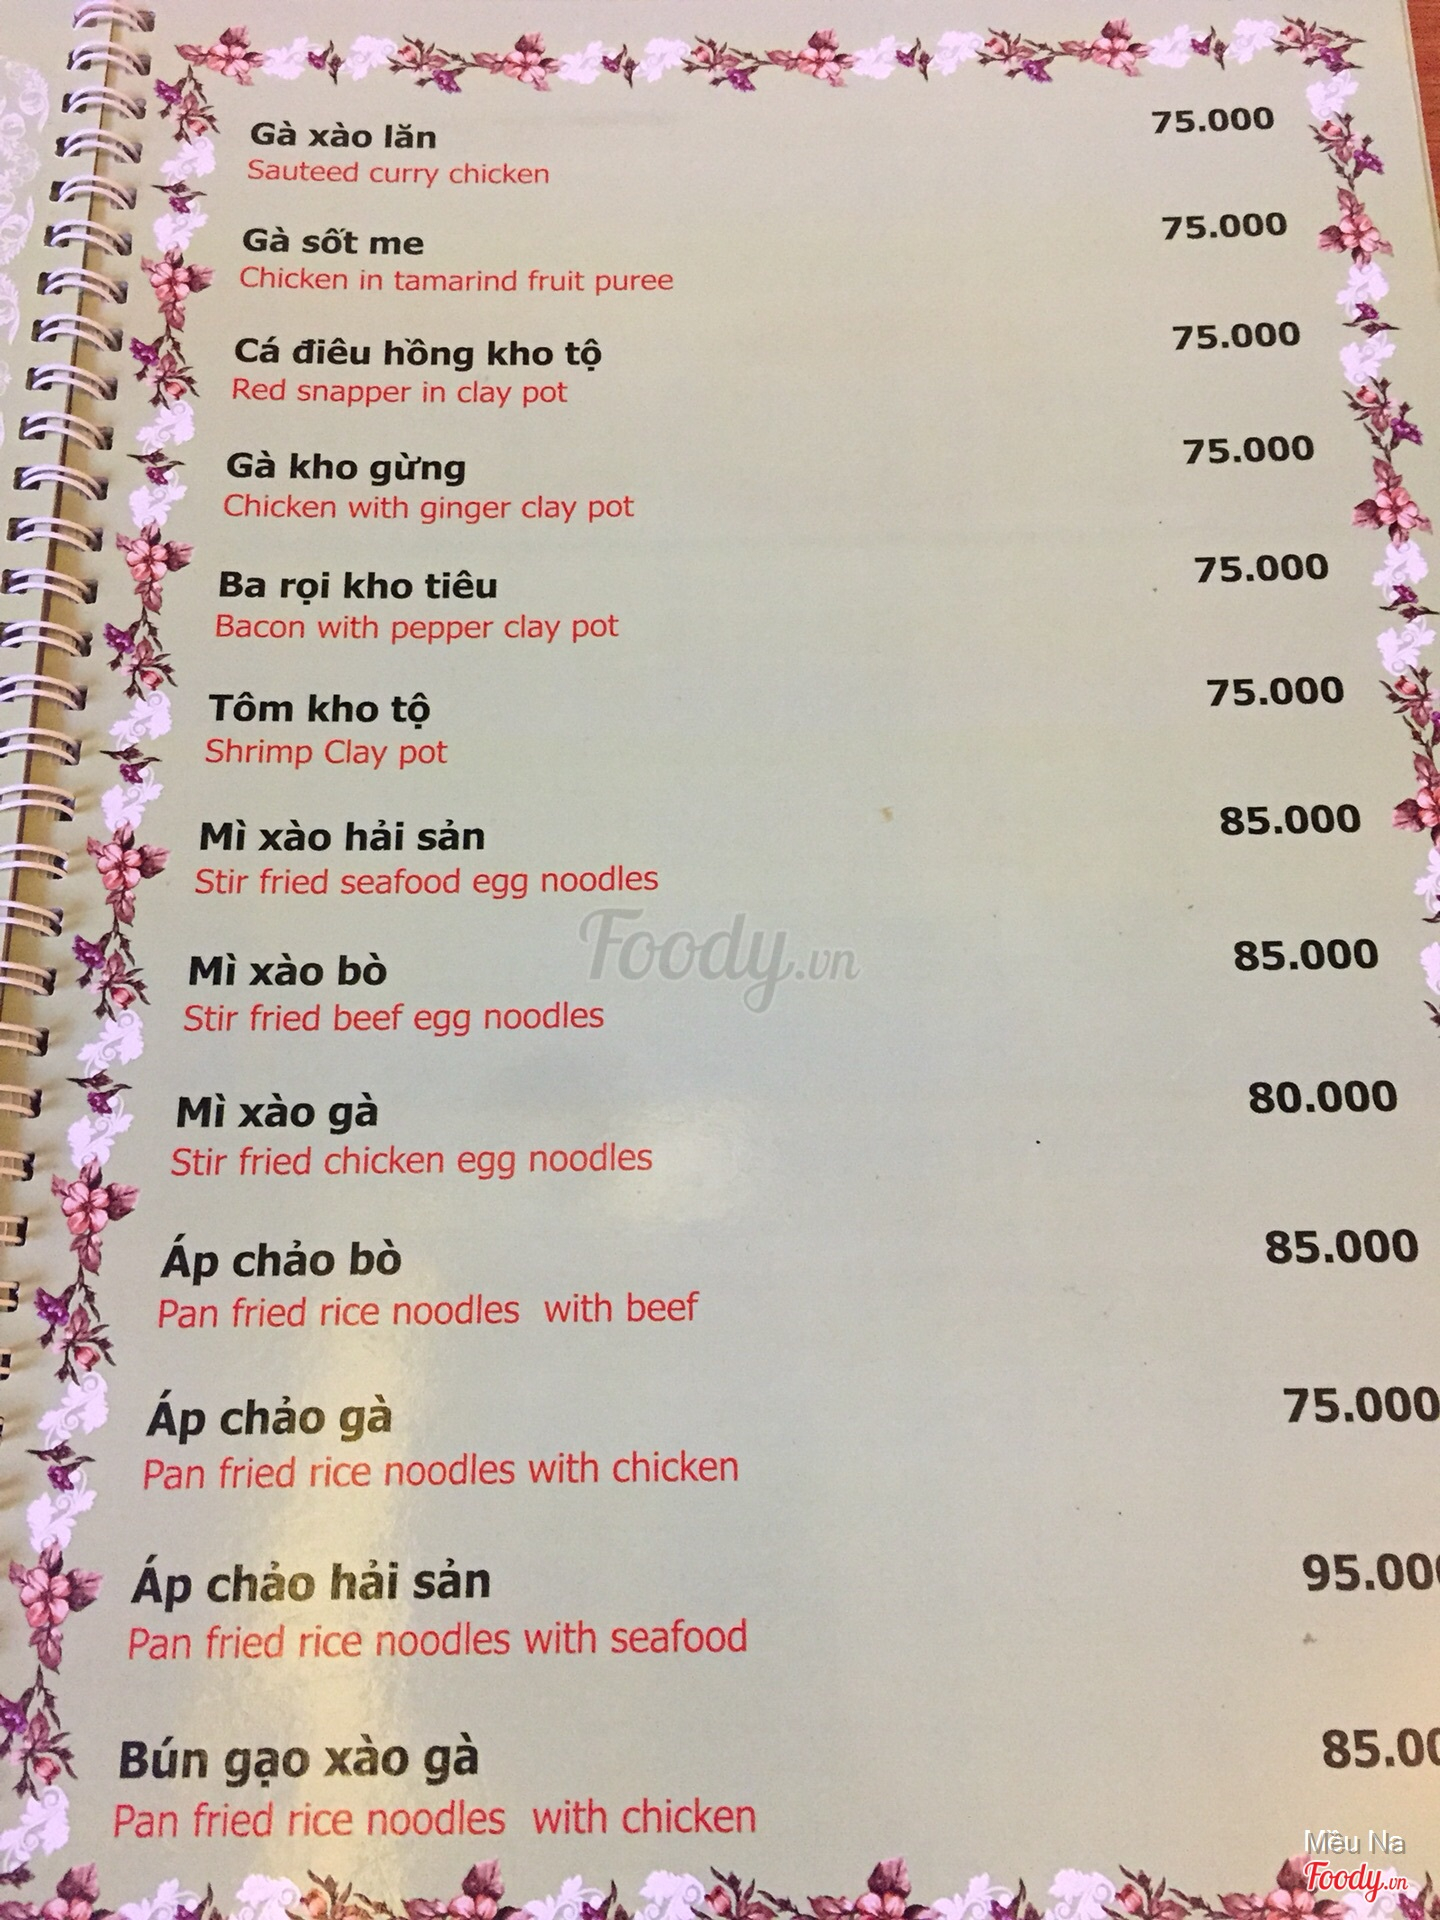 Gà xào lăn 75.000
Sauteed curry chicken
Gà sốt me 75.000
Chicken in tamarind fruit puree
Cá điêu hồng kho tộ 75.000
Red snapper in clay pot
Gà kho gừng 75.000
Chicken with ginger clay pot
Ba rọi kho tiêu 75.000
Bacon with pepper clay pot
Tôm kho tộ 75.000
Shrimp Clay pot
Mì xào hải sản 85.000
Stir fried seafood egg noodles
Foody.vn
Mì xào bò 85.000
Stir fried beef egg noodles
Mì xào gà 80.000
Stir fried chicken egg noodles
Áp chảo bò 85.000
Pan fried rice noodles with beef
Áp chảo gà 75.000
Pan fried rice noodles with chicken
Áp chảo hải sản 95.000
Pan fried rice noodles with seafood
Bún gạo xào gà 85.00
Pan fried rice noodles with chicken
Mều Na
Foody.vn